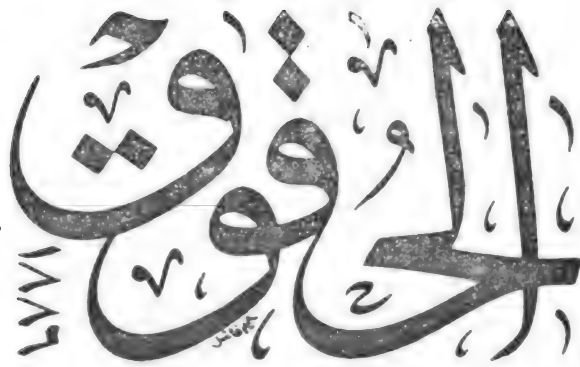 الحقوق